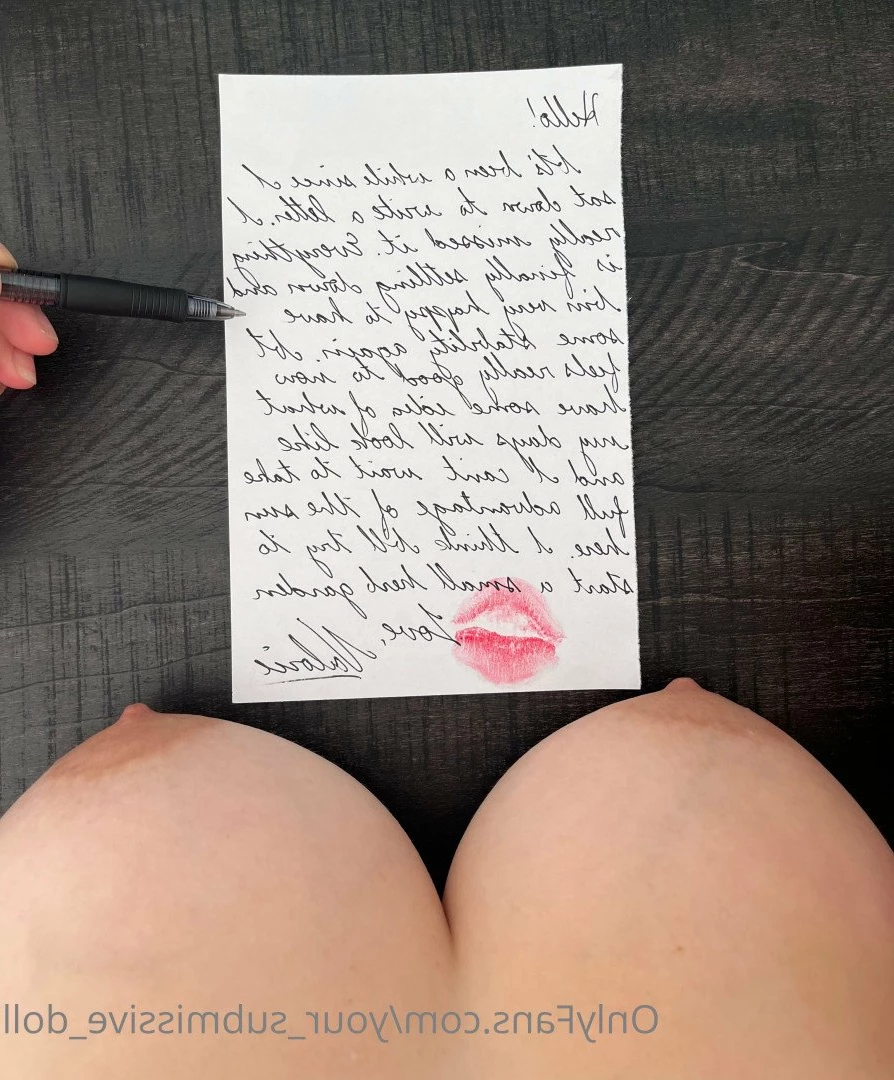 Hello!
It's been a while since I
sat down to write a letter. I
really missed it. Everything
is finally settling down and
I'm very happy to have
some stability again. It
feels really good to now
have some idea of what
my days will look like
and I can't wait to take
full advantage of the sun
here. I think I'll try to
start a small herb garden
Love,
Valorie
OnlyFans.com/your_submissive_doll